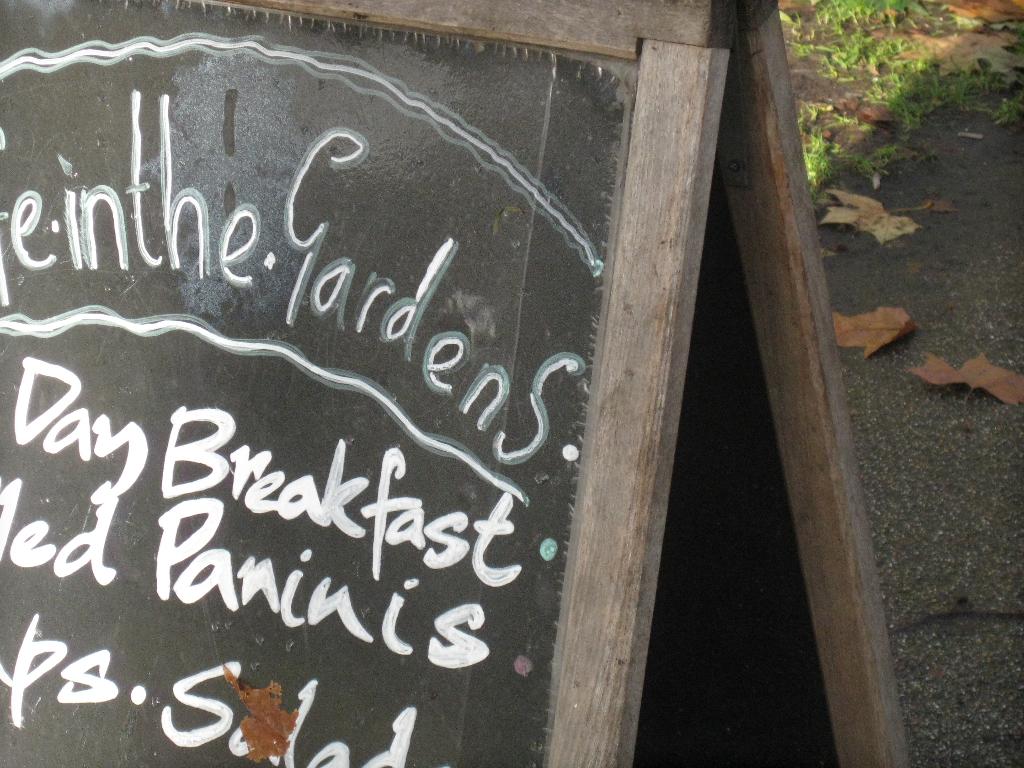 fe.inthe.Gardens.
Day Breakfast
lled Paninis
ps. Salad